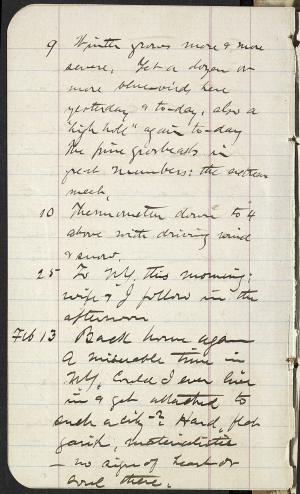 9 Winter grows more & more
severe. Yet a dozen or
more blue-birds here
yesterday & to-day, also a
"high hole" again to-day
The pine grosbeaks in
great numbers; the
week,
10 Thermometer down to 4
above with driving wind
& snow.
25 To N.Y. this morning;
wife & I follow in the
afternoon
Feb 13 Back home again
A miserable time in
N.Y. Could I ever live
in & get attached to
such a city? Hard,
materialistic
— no sign of heart or
soul there.